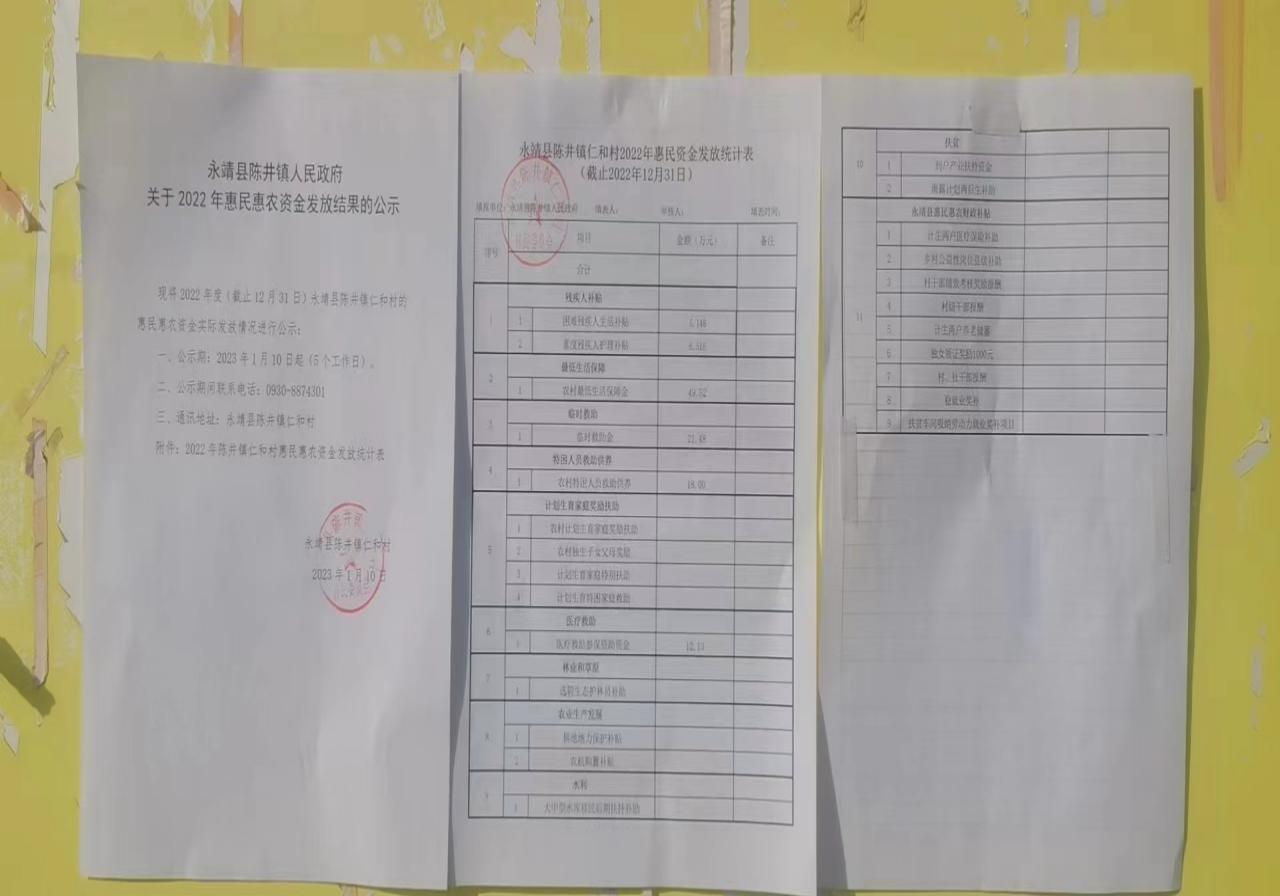 永靖县陈井镇人民政府
关于 2022 年惠民惠农资金发放结果的公示
现将 2022 年度（截止 12 月 31 日）永靖县陈井镇仁和村的
惠民惠农资金实际发放情况进行公示：
一、公示期：2023 年 1 月 10 日起（5 个工作日）。
二、公示期间联系电话：0930-8874301
三、通讯地址：永靖县陈井镇仁和村
附件：2022 年陈井镇仁和村惠民惠农资金发放统计表
永靖县陈井镇仁和村
2023 年 1 月 10 日
永靖县陈井镇仁和村2022年惠民资金发放统计表
（截止2022年12月31日）
填报单位：永靖县陈井镇人民政府 填表人： 审核人： 填表时间：
序号 项目 金额（万元） 备注
合计
1 残疾人补贴
1 困难残疾人生活补贴
2 重度残疾人护理补贴
2 最低生活保障
1 农村最低生活保障金 49.52
3 临时救助
1 临时救助金 21.48
4 特困人员救助供养
1 农村特困人员救助供养 18.00
5 计划生育家庭奖励扶助
1 农村计划生育家庭奖励扶助
2 农村独生子女父母奖励
3 计划生育家庭特别扶助
4 计划生育特困家庭救助
6 医疗救助
1 医疗救助参保资助资金 12.13
7 林业和草原
1 选聘生态护林员补助
8 农业生产发展
1 耕地地力保护补贴
2 农机购置补贴
9 水利
1 大中型水库移民后期扶持补助
10 扶贫
1 到户产业扶持资金
2 雨露计划两后生补助
11 永靖县惠民惠农财政补贴
1 计生两户医疗保险补助
2 乡村公益性岗位县级补助
3 村干部绩效考核奖励报酬
4 村级干部报酬
5 计生两户养老储蓄
6 独女领证奖励1000元
7 村、社干部报酬
8 稳就业奖补
9 扶贫车间吸纳劳动力就业奖补项目